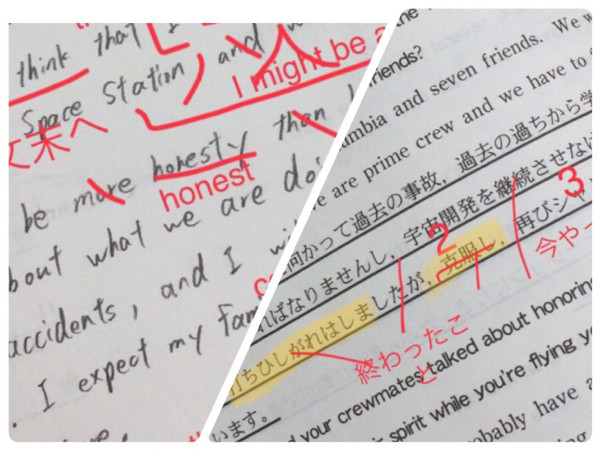 think that I
Space Station, and
I might be a
文末へ
be more honesty than
honest
bout what we are doi
accidents, and I wi
. I expect my fam
the
friends?
umbia and seven friends. We w
are prime crew and we have to
向かって過去の事故，過去の過ちから学
ればなりませんし，宇宙開発を継続させな
3
2
打ちひしがれはしましたが，克服し，再びシャ
今やっ
終わったこ
と
います。
d your crewmates talked about honoring
spirit while you're flying yo
obably have a